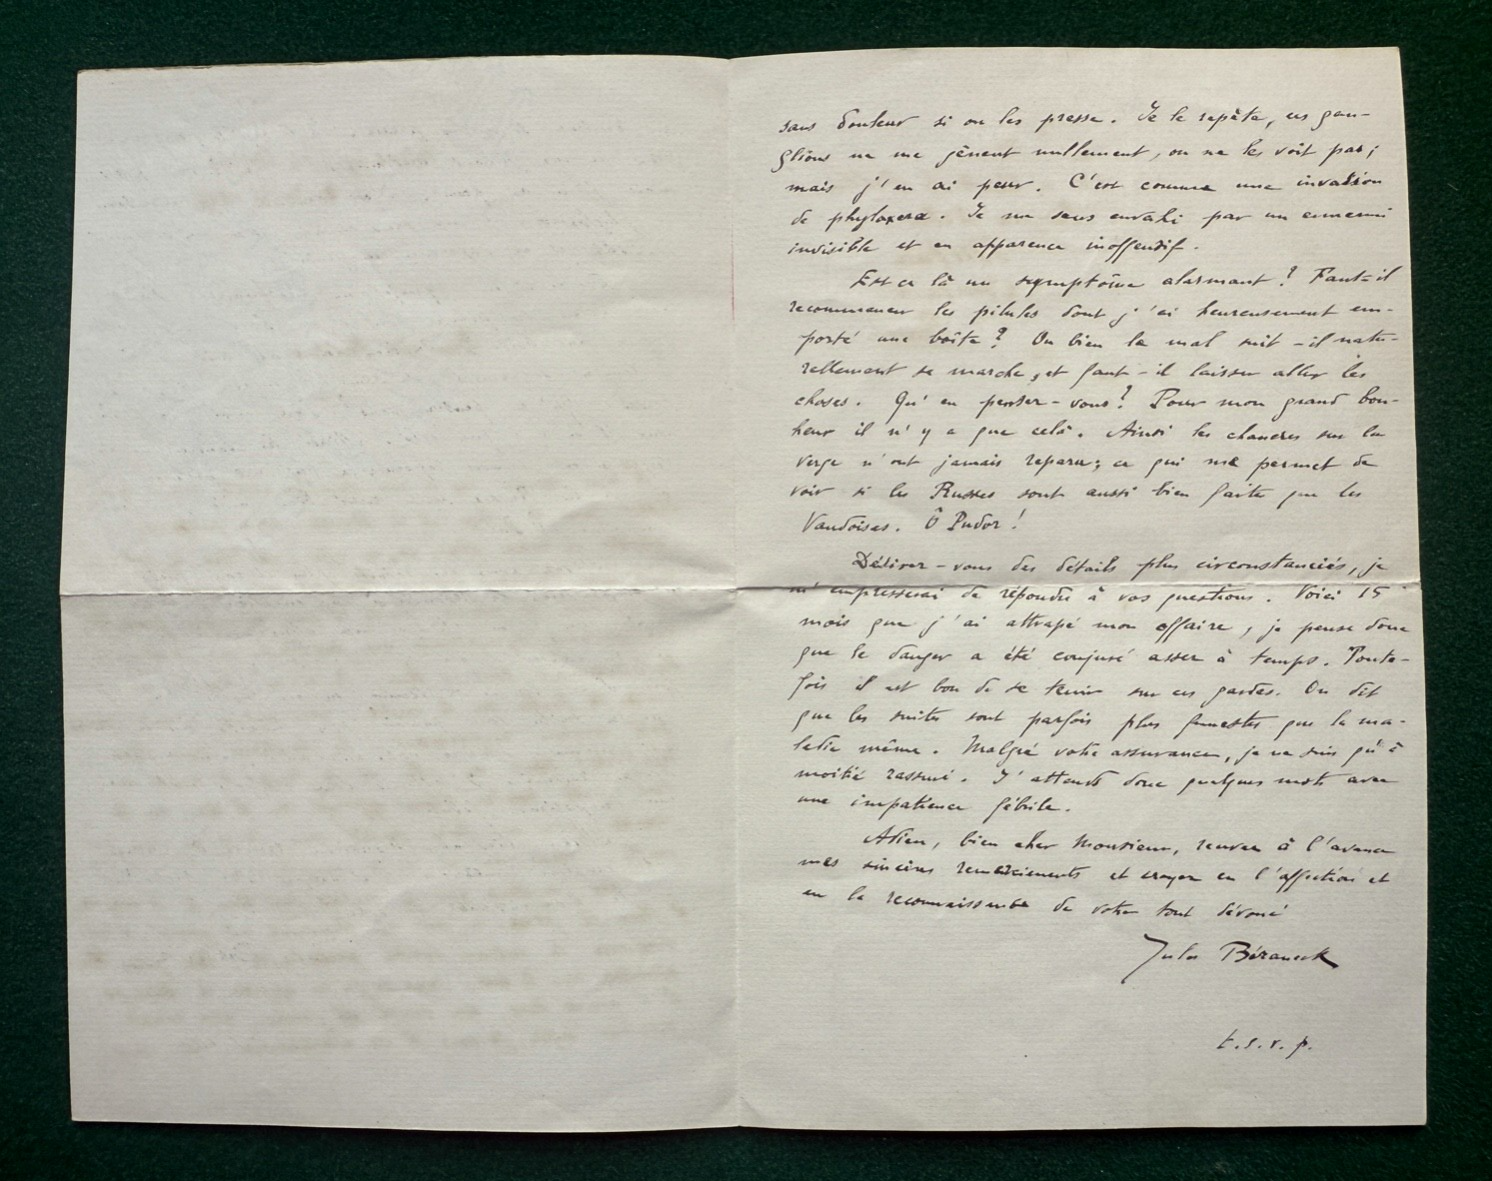 sans douleur si on les presse. Je le repète, ces gan-
glions ne me gênent nullement, on ne les voit pas;
mais j'en ai peur. C'est comme une invasion
de phyloxera. Je me sens envahi par un ennemi
invisible et en apparence inoffensif.
Est ce là un symptôme alarmant? Faut-il
recommencer les pilules dont j'ai heureusement em-
porté une boîte? Ou bien le mal suit-il natu-
rellement sa marche, et faut-il laisser aller les
choses. Qu'en pensez-vous? Pour mon grand bon-
heur il n'y a que celà. Ainsi les chancres sur la
verge n'ont jamais reparu; ce qui me permet de
voir si les Russes sont aussi bien faites que les
Vaudoises. Ô Pudor!
Désirez-vous des détails plus circonstanciés, je
m'empresserai de répondre à vos questions. Voici 15
mois que j'ai attrapé mon affaire, je pense donc
que le danger a été conjuré assez à temps. Toute-
fois il est bon de se tenir sur ses gardes. On dit
que les suites sont parfois plus funestes que la ma-
ladie même. Malgré votre assurance, je ne suis qu'à
moitié rassuré. J'attends donc quelques mots avec
une impatience fébrile.
Adieu, bien cher Monsieur, recevez à l'avance
mes sincères remerciements et croyez en l'affection et
en la reconnaissance de votre tout dévoué
Jules Béraneck
t.s.v.p.